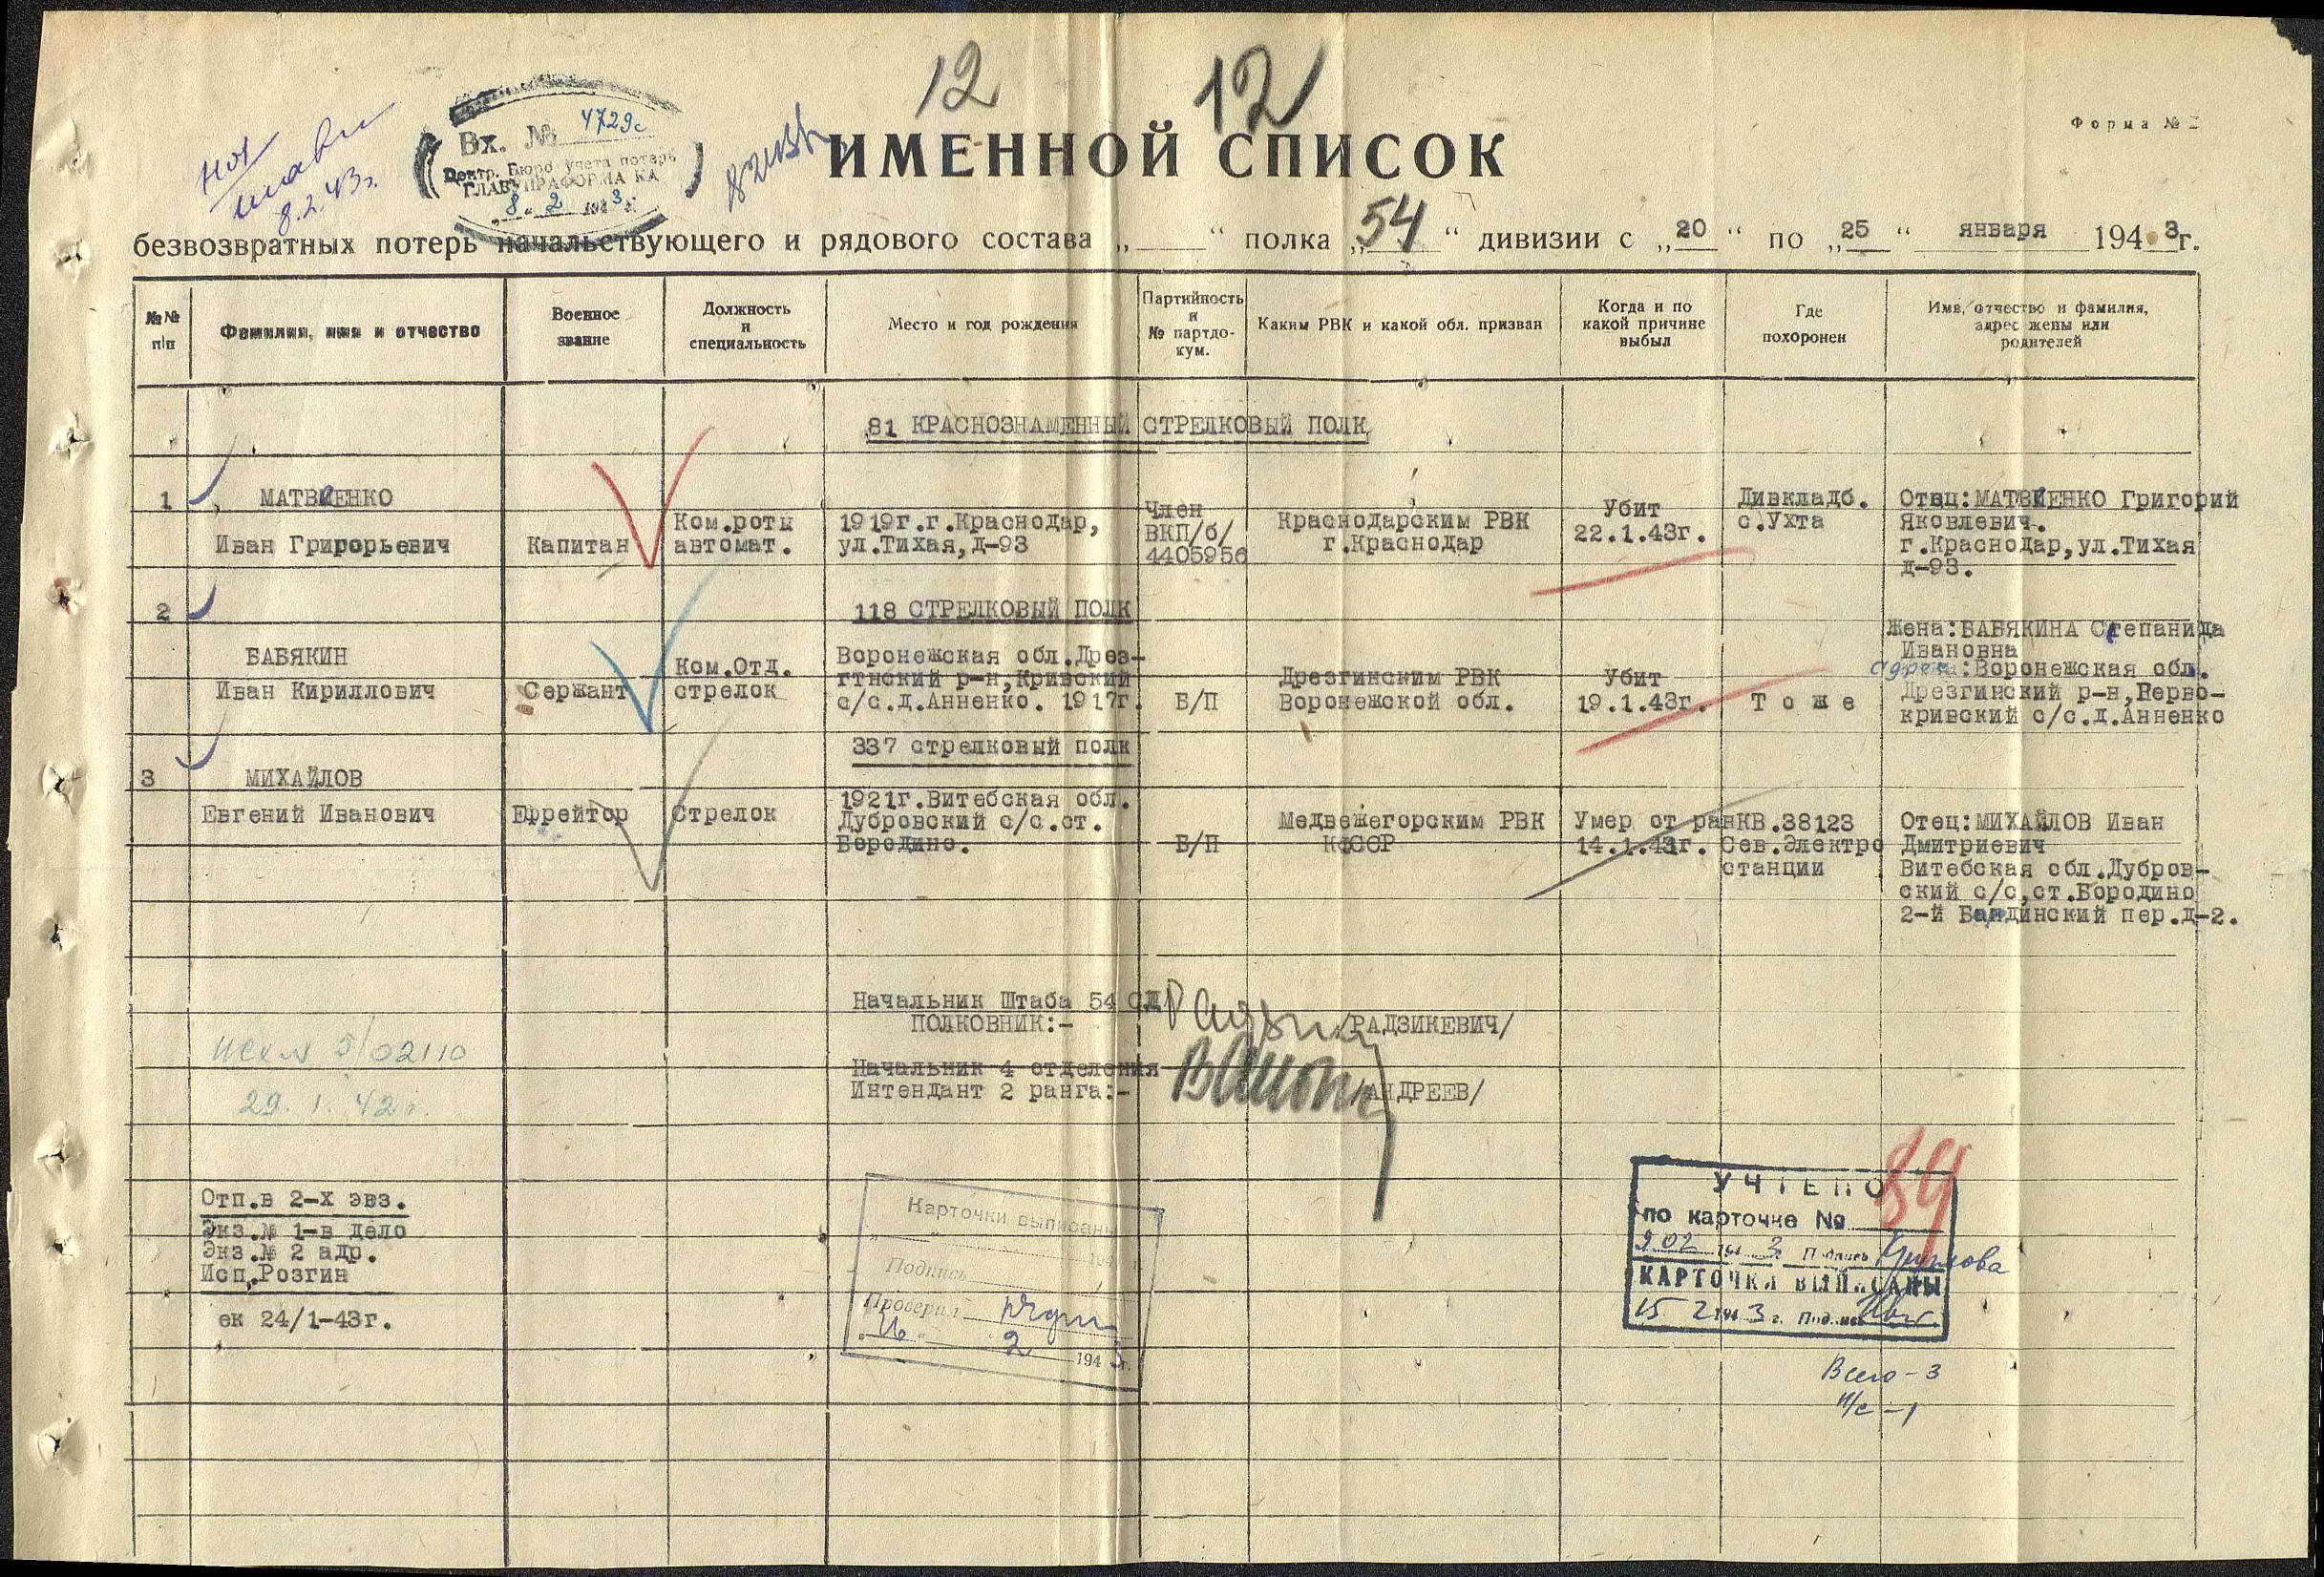 12 12
Форма № I
Вх. № 4729с
Центр. Бюро учета потерь
ГЛАВУПРАФОРМА КА
„8" 2 1943 г.
8.2.43г.
ИМЕННОЙ СПИСОК
безвозвратных потерь начальствующего и рядового состава „ " полка „54" дивизии с „20" по „25" января 1943г.
№№ п/п
Фамилия, имя и отчество
Военное звание
Должность и специальность
Место и год рождения
Партийность и № партдо-кум.
Каким РВК и какой обл. призван
Когда и по какой причине выбыл
Где похоронен
Имя, отчество и фамилия, адрес жены или родителей
81 КРАСНОЗНАМЕННЫЙ СТРЕЛКОВЫЙ ПОЛК
1
МАТВИЕНКО
Иван Григорьевич
Капитан
Ком.роты
автомат.
1919г.г.Краснодар,
ул.Тихая,д-93
Член
ВКП/б/
4405956
Краснодарским РВК
г.Краснодар
Убит
22.1.43г.
Дивкладб.
с.Ухта
Отец:МАТВИЕНКО Григорий
Яковлевич.
г.Краснодар,ул.Тихая
д-93.
2
118 СТРЕЛКОВЫЙ ПОЛК
БАБЯКИН
Иван Кириллович
Сержант
Ком.Отд.
стрелок
Воронежская обл.Дрез-
гтнский р-н,Кривский
с/с.д.Анненко. 1917г.
Б/П
Дрезгинским РВК
Воронежской обл.
Убит
19.1.43г.
Т о ж е
Жена:БАБЯКИНА Степанида
Ивановна
адрес:Воронежская обл.
Дрезгинский р-н,Перво-
кривский с/с.д.Анненко
337 стрелковый полк
3
МИХАЙЛОВ
Евгений Иванович
Ефрейтор
Стрелок
1921г.Витебская обл.
Дубровский с/с.ст.
Бородино.
Б/П
Медвежегорским РВК
КФССР
Умер от ран
14.1.43г.
КВ.38123
Сев.Электро
станции
Отец:МИХАЙЛОВ Иван
Дмитриевич
Витебская обл.Дубров-
ский с/с,ст.Бородино
2-й Бандинский пер.д-2.
Начальник Штаба 54 СД
ПОЛКОВНИК:- /РАДЗИКЕВИЧ/
Начальник 4 отделения
Интендант 2 ранга:- /АНДРЕЕВ/
исх № 5/02110
29.1.42г.
Отп.в 2-х эвз.
Экз.№ 1-в дело
Экз.№ 2 адр.
Исп.Розгин
ек 24/1-43г.
Карточки выписаны
„ " 194 г.
Подпись
Проверил
„16" 2 1943г.
УЧТЕНО
89
по карточке №
9.02 1943 г. Подпись
КАРТОЧКИ ВЫПИСАНЫ
15 2 1943 г. Подпись
Всего - 3
н/с - 1